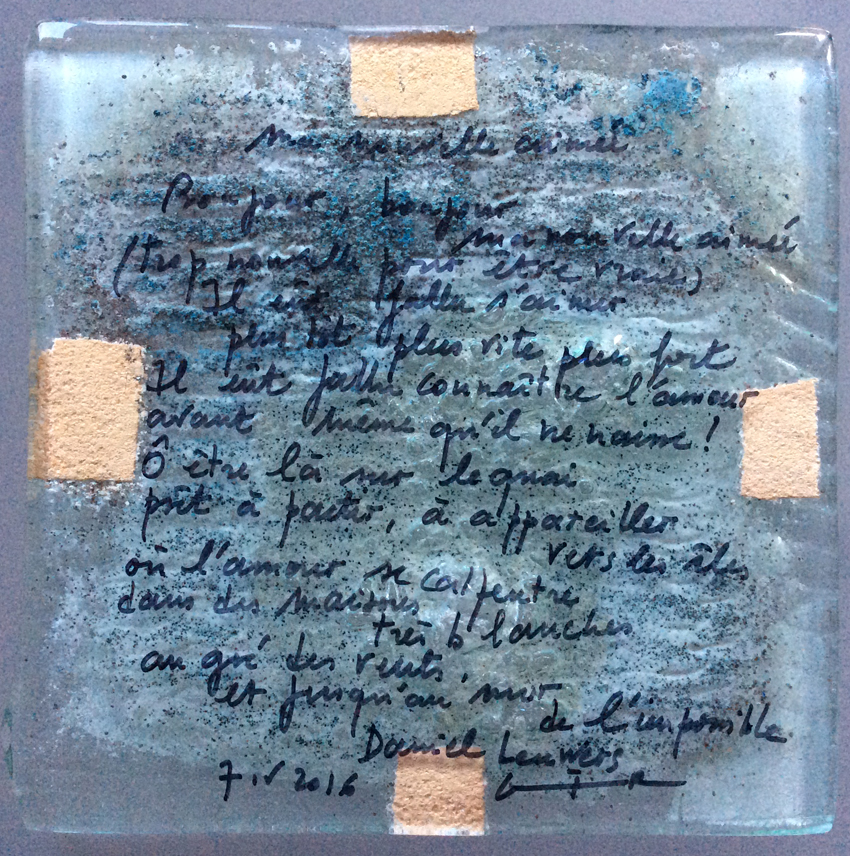 ma nouvelle aimée
Bonjour, bonjour
ma nouvelle aimée
(trop nouvelle pour être vraie)
Il eût fallu s'aimer
plus tôt plus vite plus fort
Il eût fallu connaître l'amour
avant même qu'il ne naisse !
Ô être là sur le quai
prêt à partir, à appareiller
vers les îles
où l'amour se calfeutre
dans des maisons
très blanches
au gré des vents,
et jusqu'au mur
de l'impossible
Daniel Leuwers
7 IV 2016